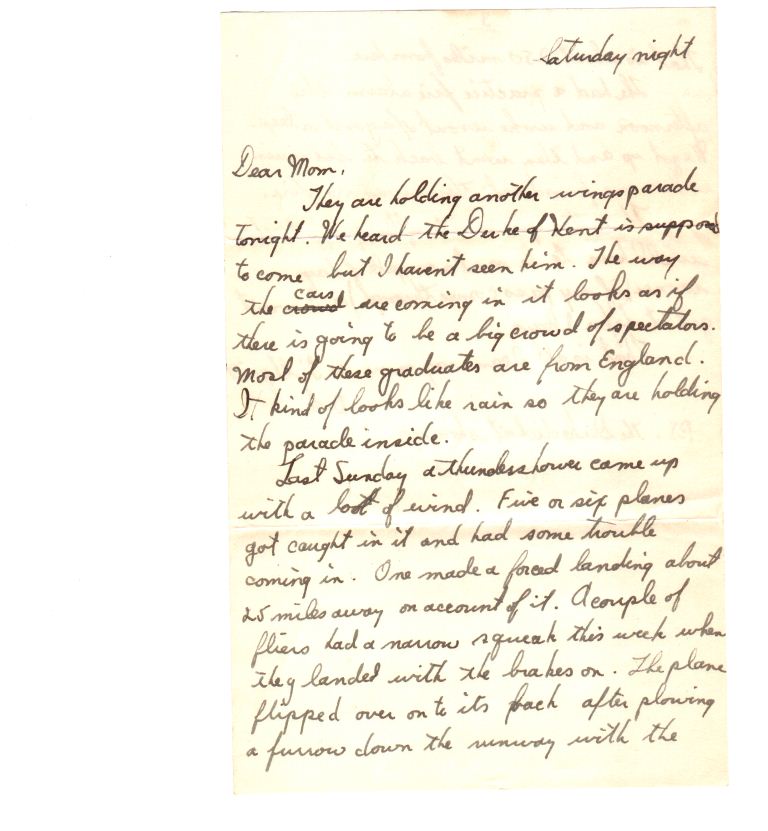 Saturday night
Dear Mom,
They are holding another wings parade
tonight. We heard the Duke of Kent is supposed
to come but I haven't seen him. The way
the cars are coming in it looks as if
there is going to be a big crowd of spectators.
Most of these graduates are from England.
It kind of looks like rain so they are holding
the parade inside.
Last Sunday a thundershower came up
with a lot of wind. Five or six planes
got caught in it and had some trouble
coming in. One made a forced landing about
25 miles away on account of it. A couple of
fliers had a narrow squeak this week when
they landed with the brakes on. The plane
flipped over on to its back after plowing
a furrow down the runway with the